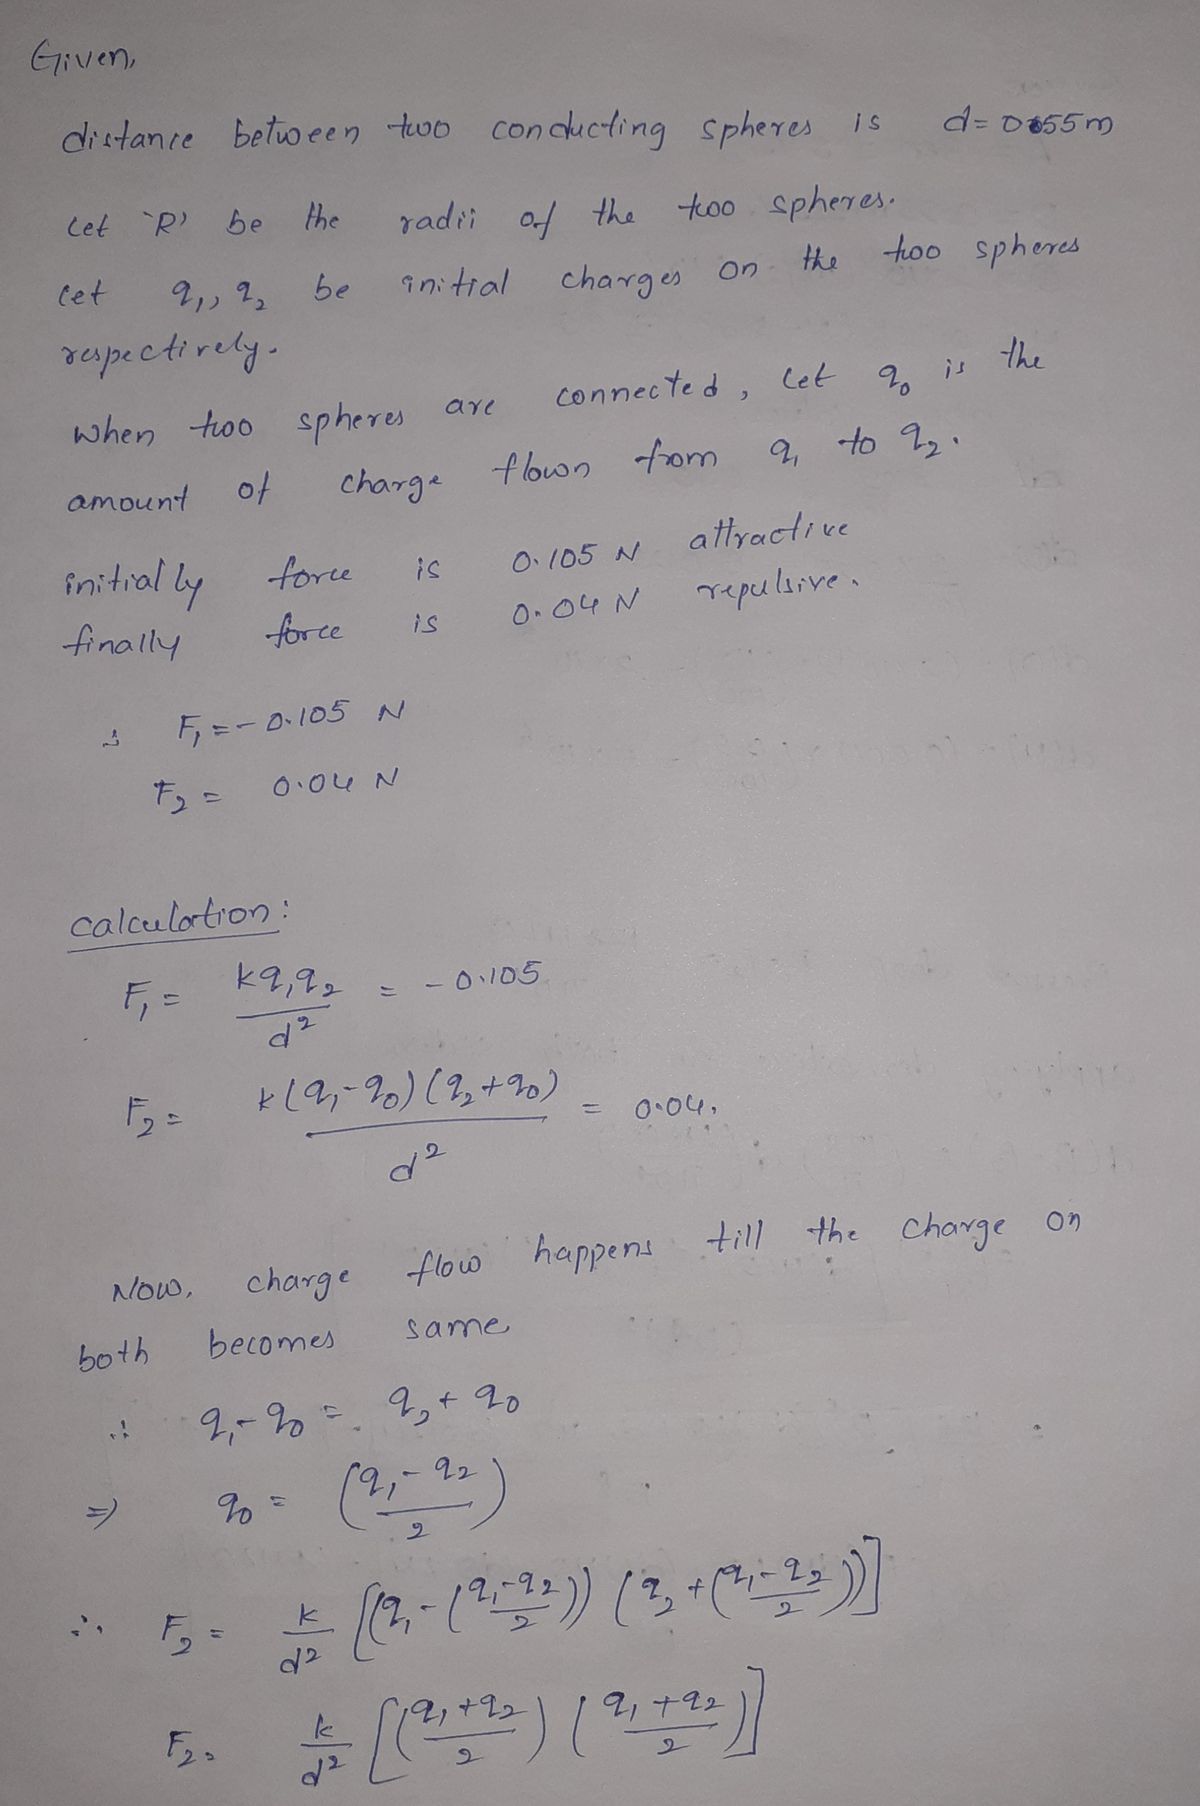 Given,
distance between two conducting spheres is d = 0.055 m
Let 'R' be the radii of the two spheres.
Let q₁, q₂ be initial charges on the two spheres
respectively.
When two spheres are connected, let q₀ is the
amount of charge flown from q₁ to q₂.
initially force is 0.105 N attractive
finally force is 0.04 N repulsive.
∴ F₁ = -0.105 N
F₂ = 0.04 N
Calculation:
F₁ = kq₁q₂/d² = -0.105
F₂ = k(q₁-q₀)(q₂+q₀)/d² = 0.04.
Now, charge flow happens till the charge on
both becomes same
∴ q₁-q₀ = q₂+q₀
⇒ q₀ = (q₁-q₂/2)
∴ F₂ = k/d² [(q₁-(q₁-q₂/2)) (q₂+(q₁-q₂/2))]
F₂ = k/d² [(q₁+q₂/2) (q₁+q₂/2)]